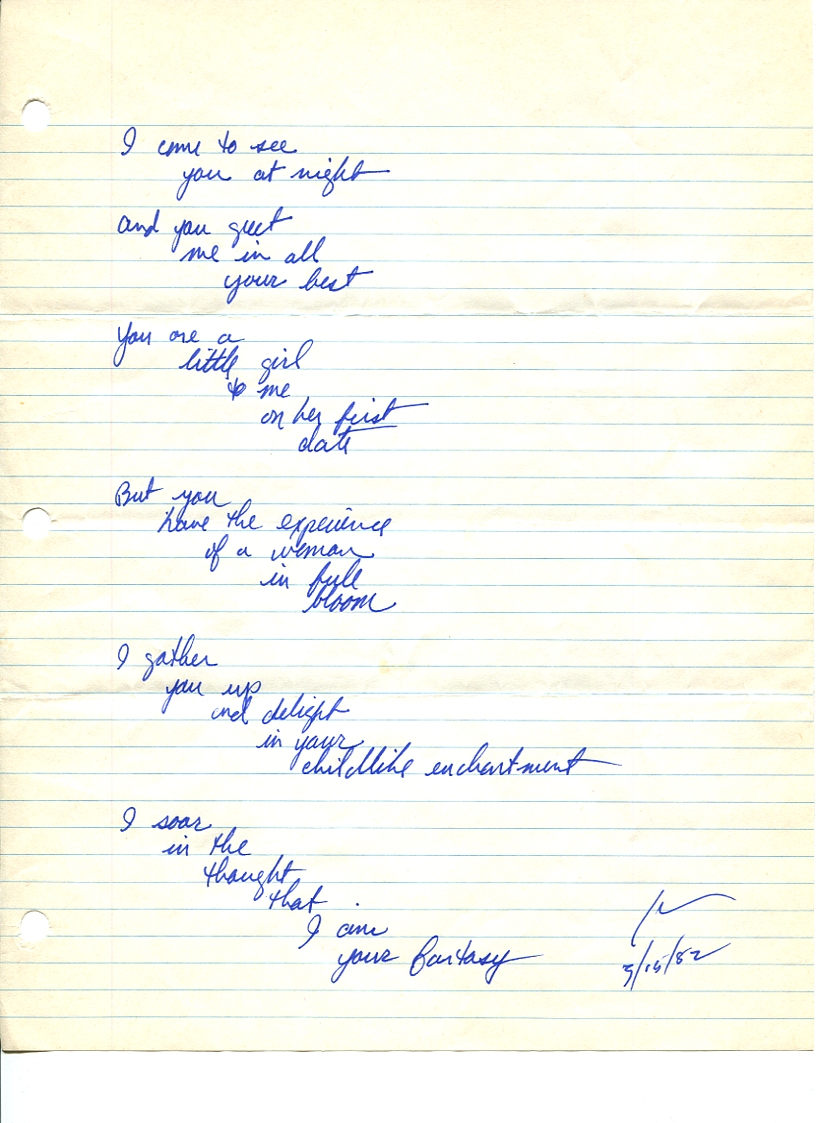 I come to see
you at night
and you greet
me in all
your best
You are a
little girl
to me
on her first
date
But you
have the experience
of a woman
in full
bloom
I gather
you up
and delight
in your
childlike enchantment
I soar
in the
thought
that
I am
your fantasy
3/15/82